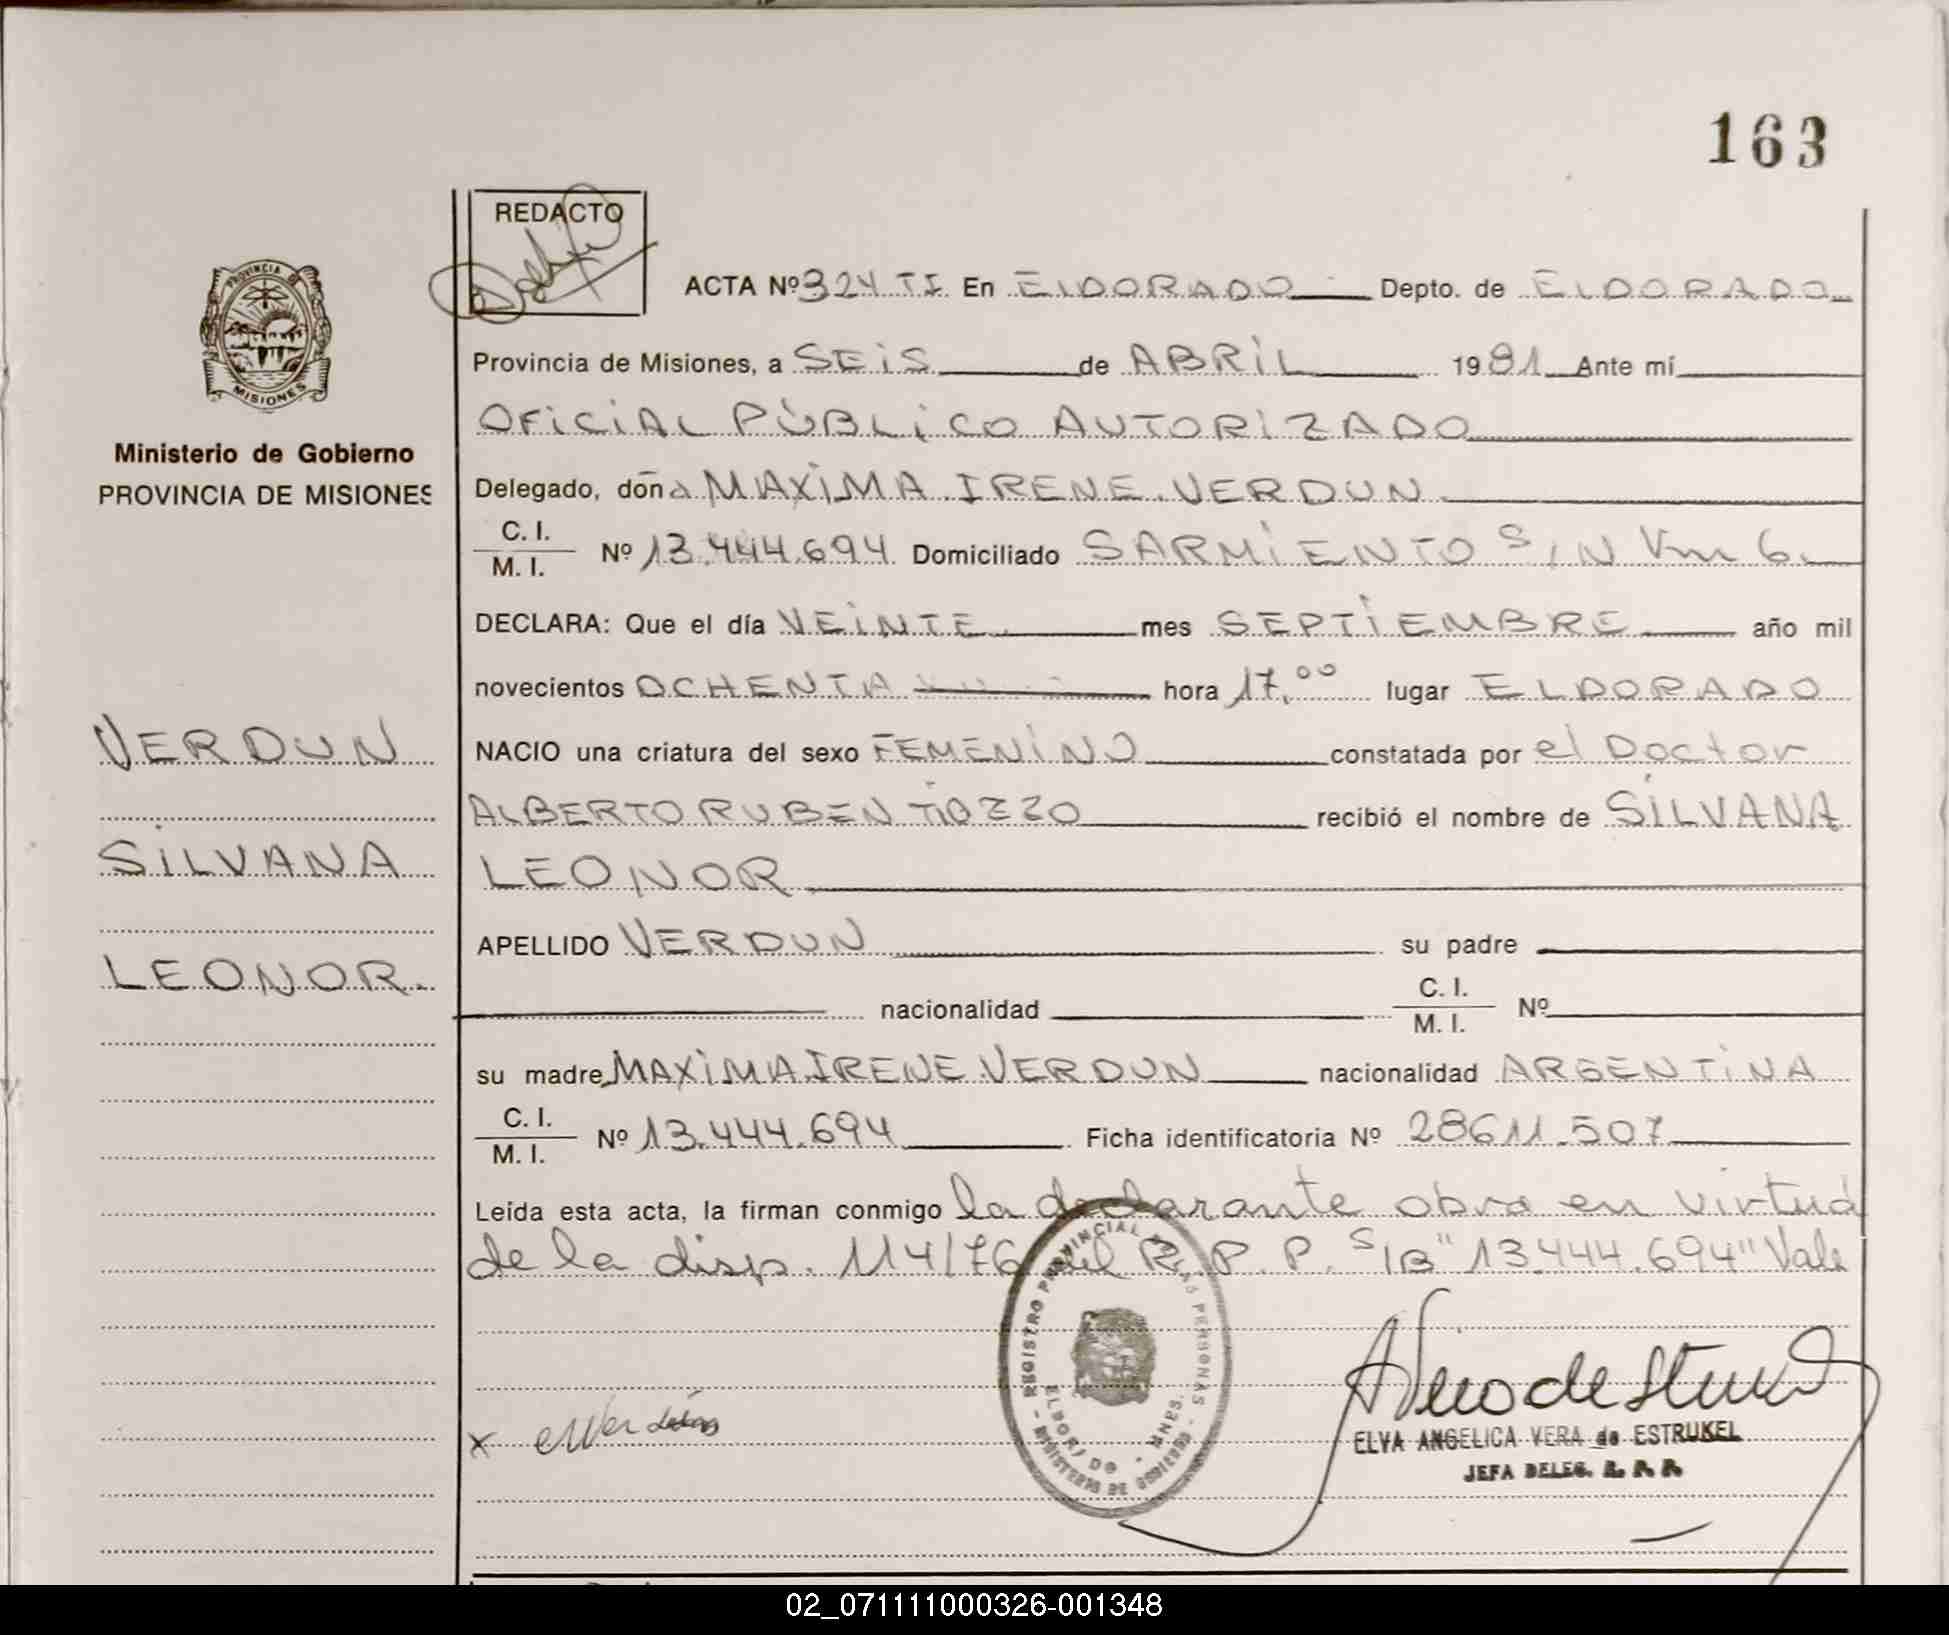 163
REDACTO
ACTA Nº 324 TI En ELDORADO Depto. de ELDORADO
Provincia de Misiones, a SEIS de ABRIL 1981 Ante mí
OFICIAL PÚBLICO AUTORIZADO
PROVINCIA DE
MISIONES
Ministerio de Gobierno
PROVINCIA DE MISIONES
Delegado, doña MAXIMA IRENE VERDUN
C. I.
M. I. Nº 13.444.694 Domiciliado SARMIENTO S/N Km 6
DECLARA: Que el día VEINTE mes SEPTIEMBRE año mil
novecientos OCHENTA hora 17,00 lugar ELDORADO
NACIO una criatura del sexo FEMENINO constatada por el Doctor
ALBERTO RUBEN recibió el nombre de SILVANA
LEONOR
VERDUN
SILVANA
LEONOR.
APELLIDO VERDUN su padre
nacionalidad C. I.
M. I. Nº
su madre MAXIMA IRENE VERDUN nacionalidad ARGENTINA
C. I.
M. I. Nº 13.444.694 Ficha identificatoria Nº 28611.507
Leída esta acta, la firman conmigo la declarante obra en virtud
de la disp. 114/76 del R. P. P. S/B "13.444.694" Vale
REGISTRO PROVINCIAL DE LAS PERSONAS
ELDORADO - MNES.
- MINISTERIO DE GOBIERNO -
x
ELVA ANGELICA VERA de ESTRUKEL
JEFA DELEG. R. P. P.
02_071111000326-001348